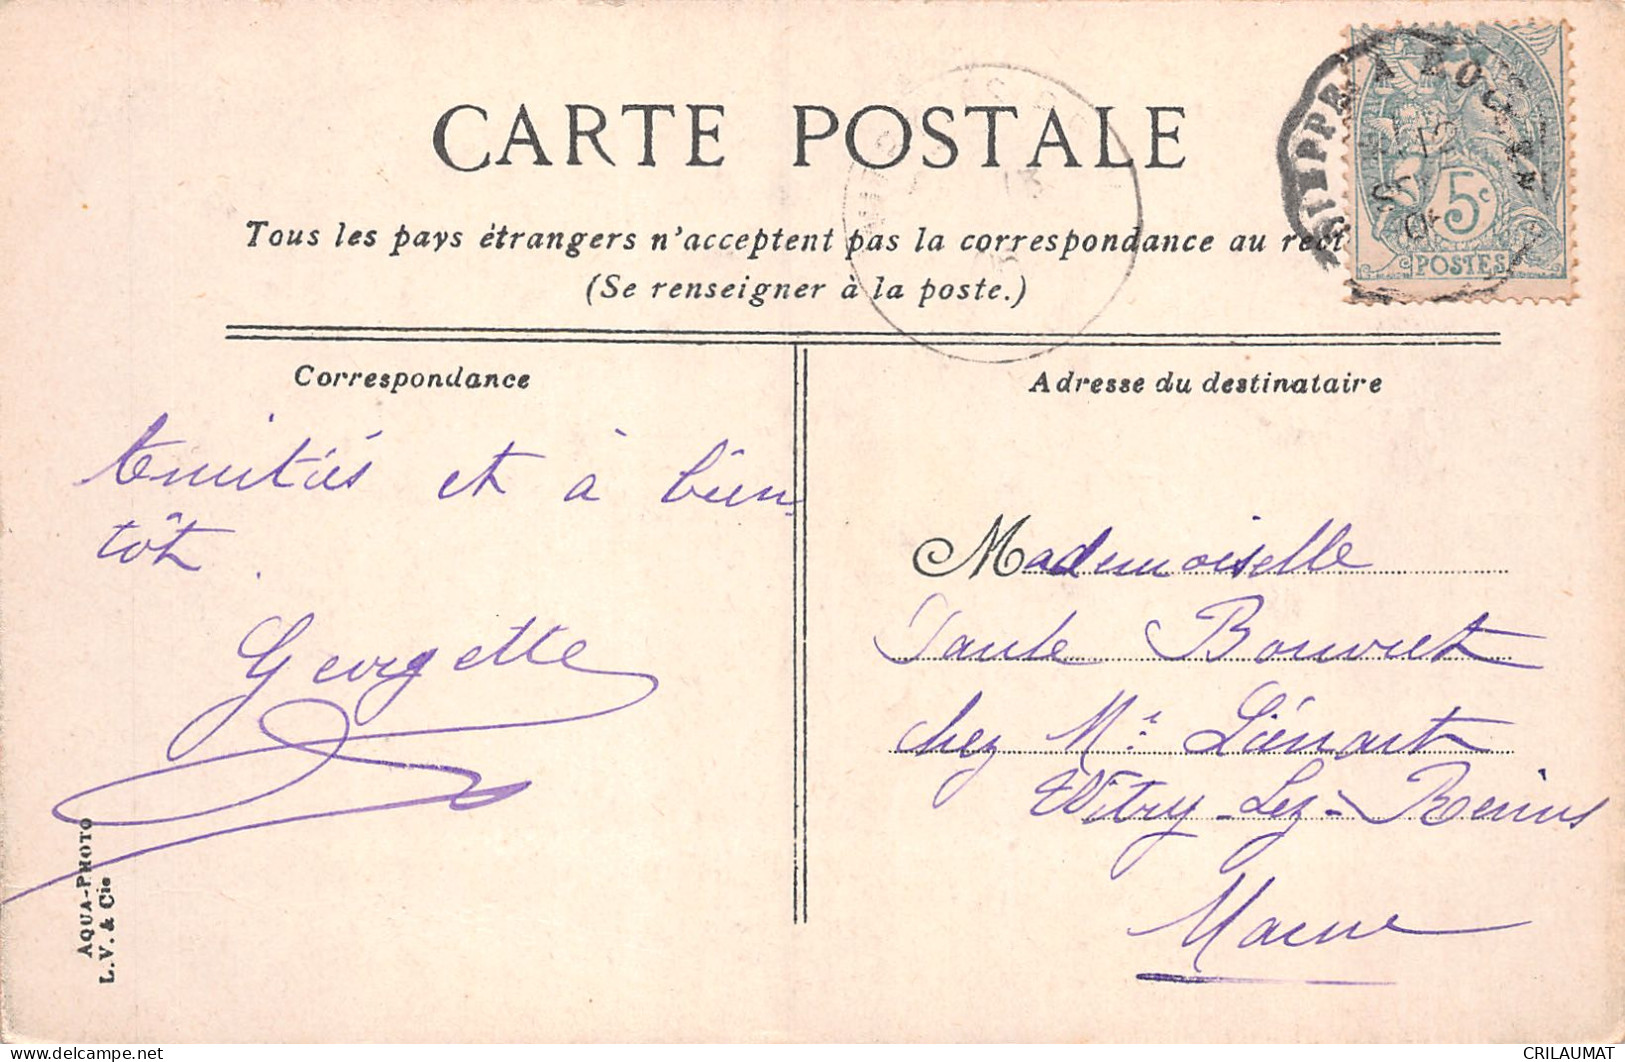 CARTE POSTALE
Tous les pays étrangers n'acceptent pas la correspondance au rect
(Se renseigner à la poste.)
5c
POSTES
Correspondance
Amitiés et à bien-
tôt.
Georgette
AQUA-PHOTO
L. V. & Cie
Adresse du destinataire
Mademoiselle
Paule Bouvret
chez Mr Liénart
Witry-Lez-Reims
Marne
www.delcampe.net
CRILAUMAT